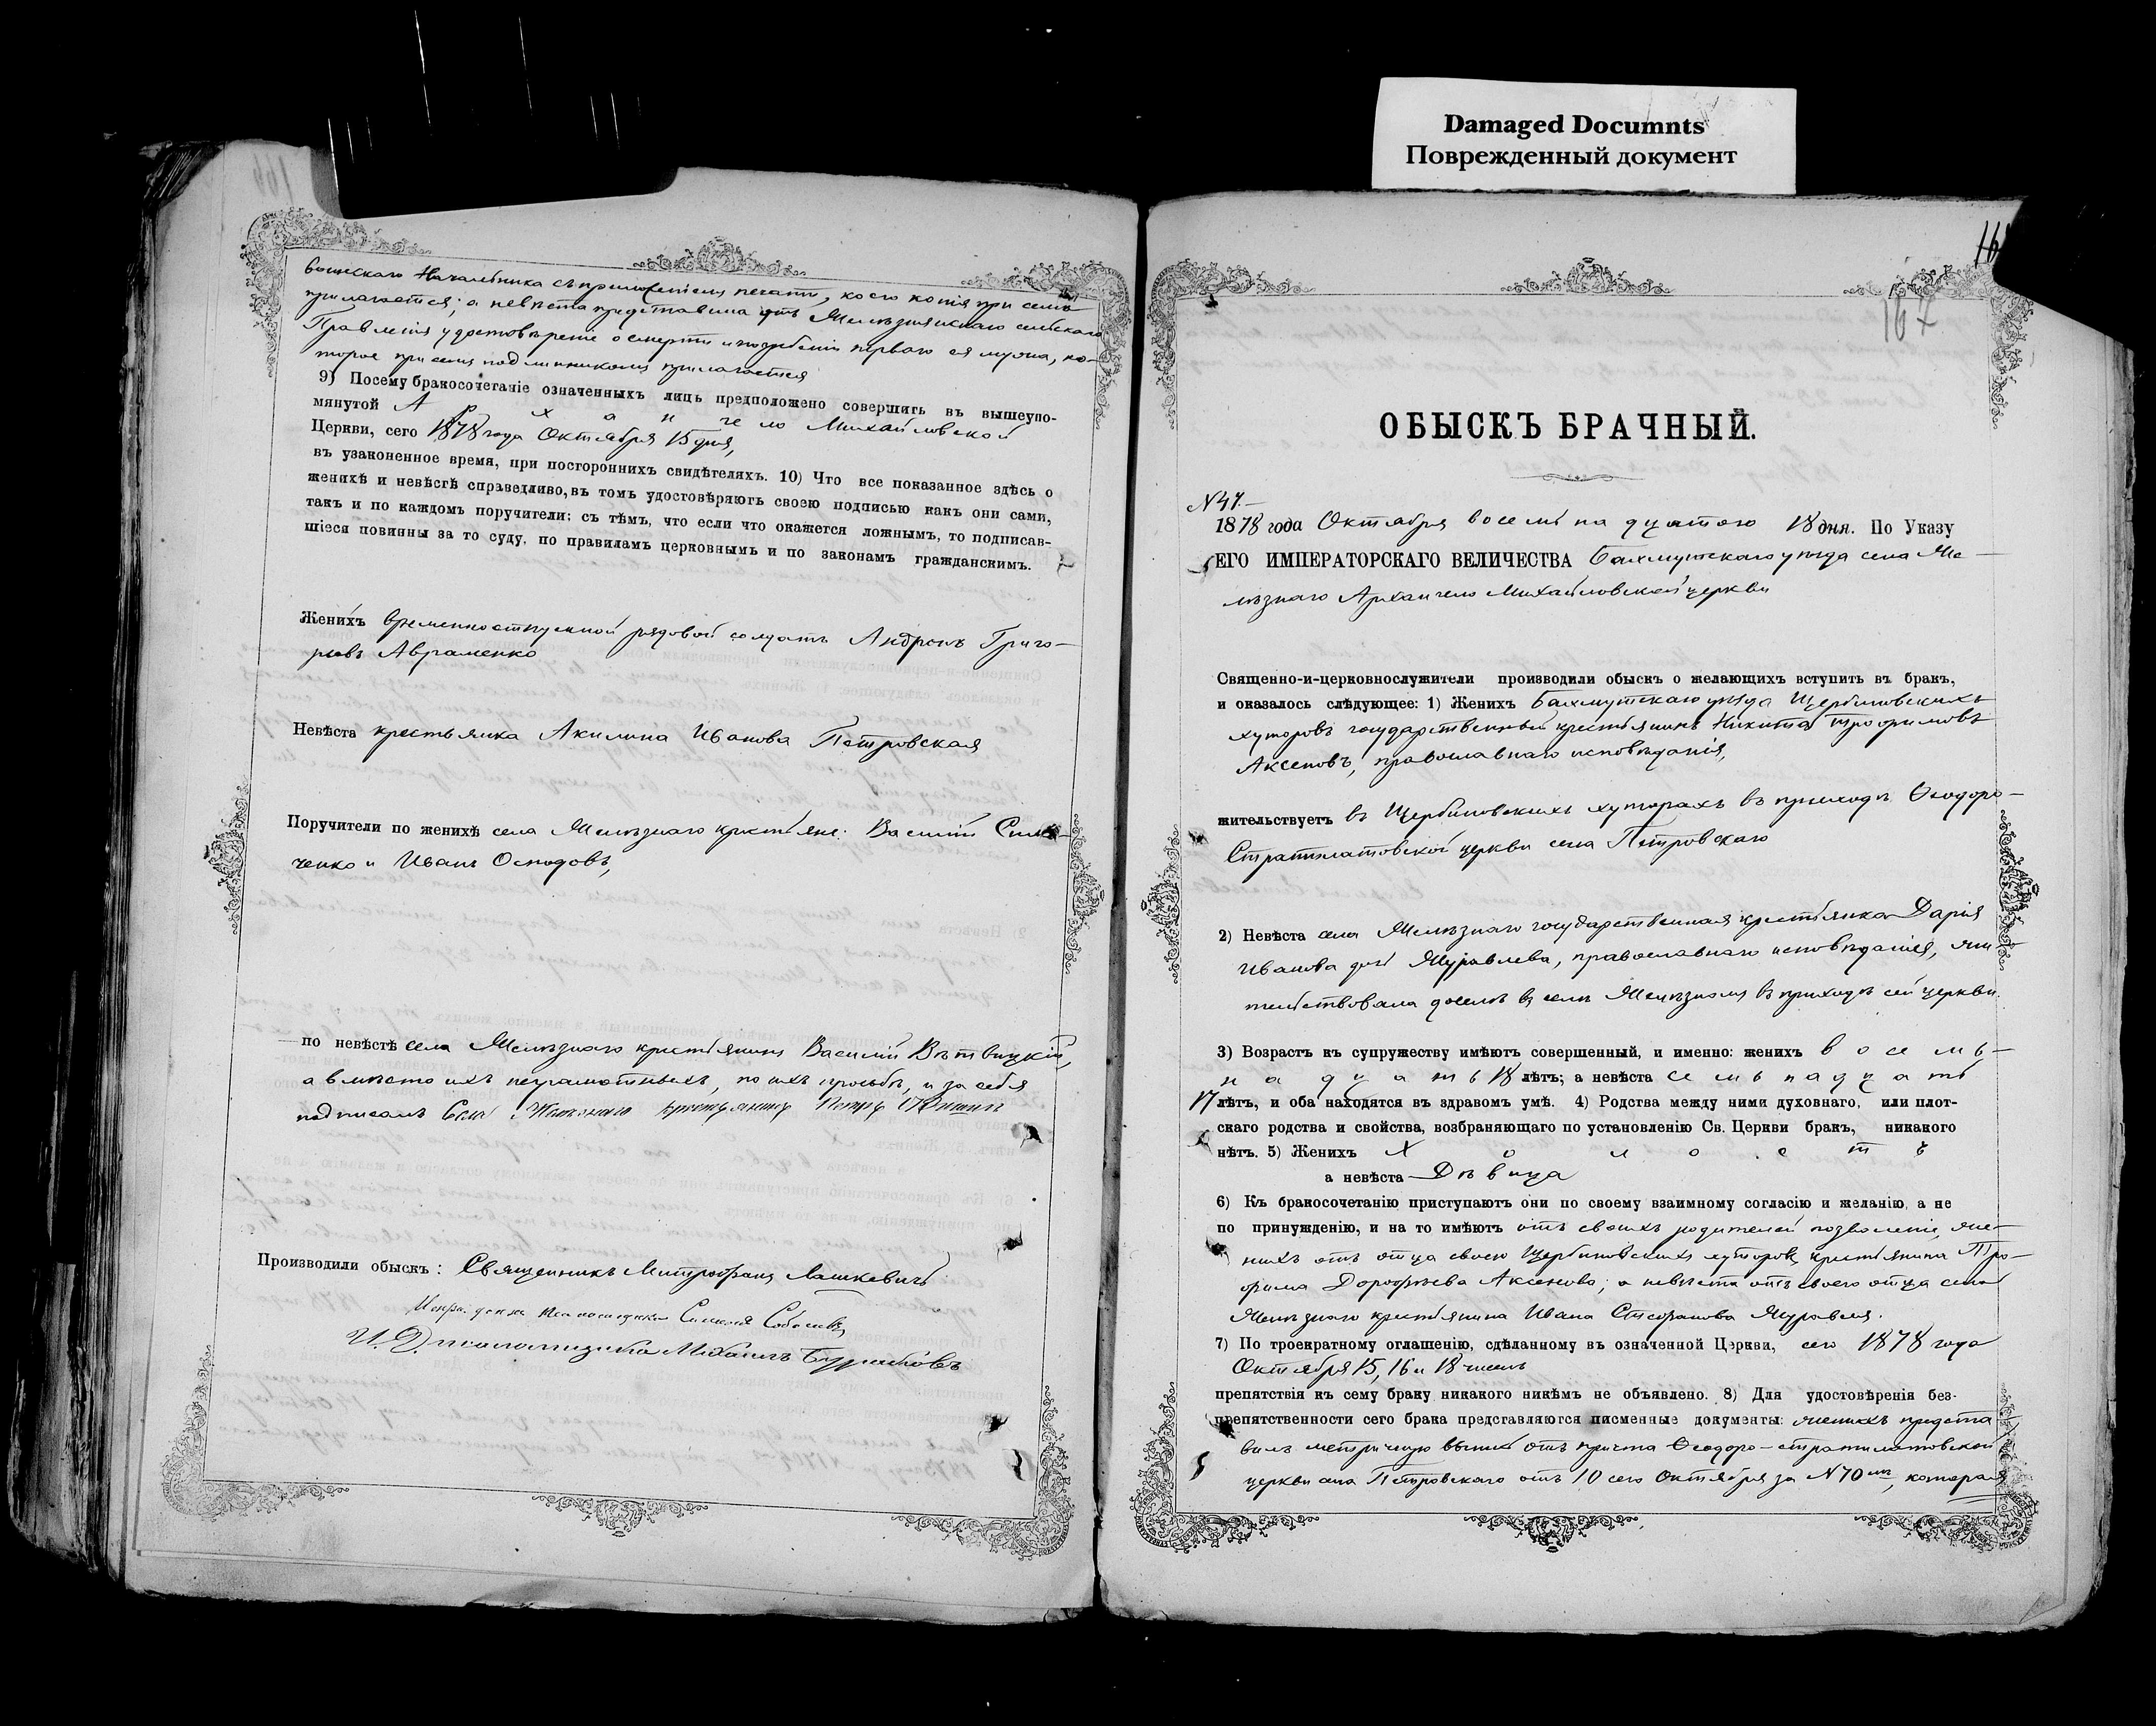 Damaged Documnts
Поврежденный документ
166
воинскаго Начальника съ приложеніемъ печати, коего копія при семъ
прилагается; а невѣста представила отъ Желѣзнянскаго сельскаго
Правленія удостовѣреніе о смерти и погребеніи перваго ея мужа, ко-
торое при семъ подлинникомъ прилагается
9) Посему бракосочетаніе означенныхъ лицъ предположено совершить въ вышеупо-
мянутой Архангело Михайловской
Церкви, сего 1878 года Октября 15 дня,
въ узаконенное время, при постороннихъ свидѣтеляхъ. 10) Что все показанное здѣсь о
женихѣ и невѣстѣ справедливо, въ томъ удостовѣряютъ своею подписью какъ они сами,
такъ и по каждомъ поручители; съ тѣмъ, что если что окажется ложнымъ, то подписав-
шіеся повинны за то суду, по правиламъ церковнымъ и по законамъ гражданскимъ.
Женихъ временноотпускной рядовой солдатъ Андронъ Григо-
рьевъ Авраменко
Невѣста крестьянка Акилина Иванова Петровская
Поручители по женихѣ села Желѣзнаго крестьяне: Василій
ченко и Иванъ
по невѣстѣ села Желѣзнаго крестьянинъ Василій Вѣтвицкій,
а вмѣсто ихъ неграмотныхъ, по ихъ просьбѣ, и за себя
подписалъ села Желѣзнаго крестьянинъ Петръ
Производили обыскъ: Священникъ Митрофанъ Лашкевичъ
Испр. долж. псаломщика Симеонъ Соболевъ
И. Д. псаломщика Михаилъ
167
ОБЫСКЪ БРАЧНЫЙ.
№ 47.
1878 года Октября восемнадцатого 18 дня. По Указу
ЕГО ИМПЕРАТОРСКАГО ВЕЛИЧЕСТВА Бахмутскаго уѣзда села Же-
лѣзнаго Архангело Михайловской церкви
Священно-и-церковнослужители производили обыскъ о желающихъ вступить въ бракъ,
и оказалось слѣдующее: 1) Женихъ Бахмутскаго уѣзда Щербиновскихъ
хуторовъ государственный крестьянинъ Никита Трофимовъ
Аксеновъ, православнаго исповѣданія,
жительствуетъ въ Щербиновскихъ хуторахъ въ приходѣ Ѳеодоро-
Стратилатовской церкви села Петровскаго
2) Невѣста села Желѣзнаго государственная крестьянка Дарія
Иванова дочь Журавлева, православнаго исповѣданія, жи-
тельствовала доселѣ въ селѣ Желѣзномъ въ приходѣ сей церкви.
3) Возрастъ къ супружеству имѣютъ совершенный, и именно: женихъ восемь-
надцать 18 лѣтъ; а невѣста семьнадцать
17 лѣтъ, и оба находятся въ здравомъ умѣ. 4) Родства между ними духовнаго, или плот-
скаго родства и свойства, возбраняющаго по установленію Св. Церкви бракъ, никакого
нѣтъ. 5) Женихъ Холостъ
а невѣста Дѣвица
6) Къ бракосочетанію приступаютъ они по своему взаимному согласію и желанію, а не
по принужденію, и на то имѣютъ отъ своихъ родителей позволеніе, же-
нихъ отъ отца своего Щербиновскихъ хуторовъ крестьянина Тро-
фима Дорофѣева Аксенова; а невѣста отъ своего отца села
Желѣзнаго крестьянина Ивана Стефанова Журавля.
7) По троекратному оглашенію, сдѣланному въ означенной Церкви, сего 1878 года
Октября 15, 16 и 18 чиселъ
препятствія къ сему браку никакого никѣмъ не объявлено. 8) Для удостовѣренія без-
препятственности сего брака представляются писменные документы: женихъ предста-
вилъ метричную выпись отъ причта Ѳеодоро-стратилатовской
церкви села Петровскаго отъ 10 сего Октября за № 70мъ, которая